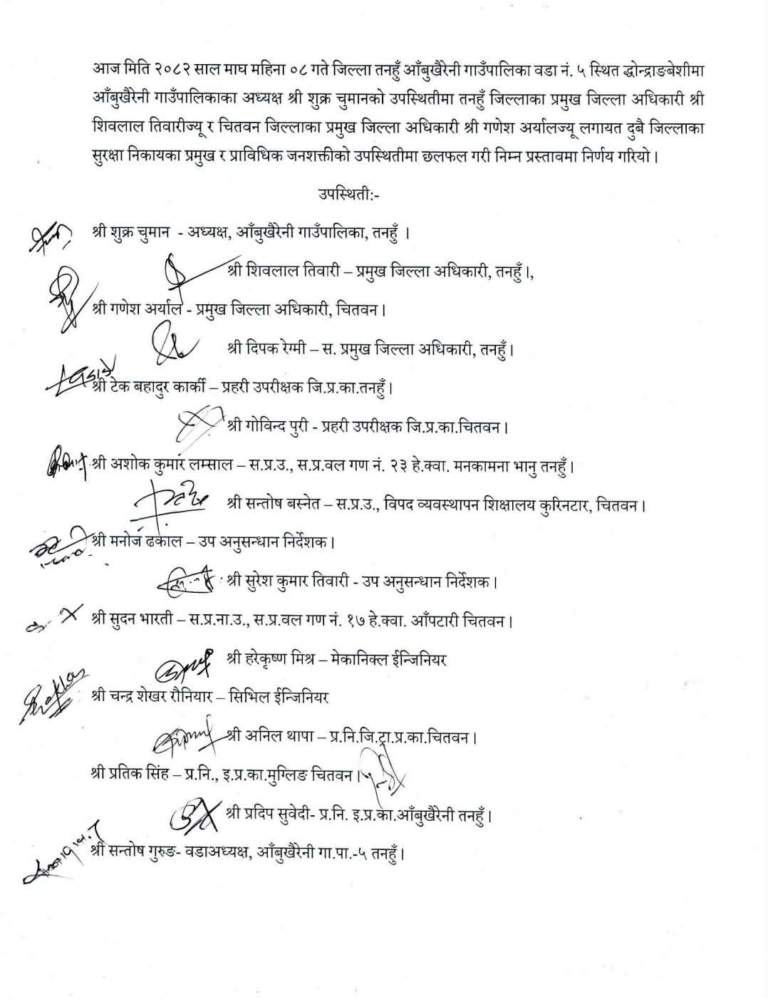 आज मिति २०८२ साल माघ महिना ०८ गते जिल्ला तनहुँ आँबुखैरेनी गाउँपालिका वडा नं. ५ स्थित द्धोन्द्राङबेशीमा
आँबुखैरेनी गाउँपालिकाका अध्यक्ष श्री शुक्र चुमानको उपस्थितीमा तनहुँ जिल्लाका प्रमुख जिल्ला अधिकारी श्री
शिवलाल तिवारीज्यू र चितवन जिल्लाका प्रमुख जिल्ला अधिकारी श्री गणेश अर्यालज्यू लगायत दुबै जिल्लाका
सुरक्षा निकायका प्रमुख र प्राविधिक जनशक्तीको उपस्थितीमा छलफल गरी निम्न प्रस्तावमा निर्णय गरियो ।
उपस्थिती:-
श्री शुक्र चुमान - अध्यक्ष, आँबुखैरेनी गाउँपालिका, तनहुँ ।
श्री शिवलाल तिवारी – प्रमुख जिल्ला अधिकारी, तनहुँ ।,
श्री गणेश अर्याल - प्रमुख जिल्ला अधिकारी, चितवन ।
श्री दिपक रेग्मी – स. प्रमुख जिल्ला अधिकारी, तनहुँ ।
श्री टेक बहादुर कार्की – प्रहरी उपरीक्षक जि.प्र.का.तनहुँ ।
श्री गोविन्द पुरी - प्रहरी उपरीक्षक जि.प्र.का.चितवन ।
श्री अशोक कुमार लम्साल – स.प्र.उ., स.प्र.वल गण नं. २३ हे.क्वा. मनकामना भानु तनहुँ ।
श्री सन्तोष बस्नेत – स.प्र.उ., विपद व्यवस्थापन शिक्षालय कुरिनटार, चितवन ।
श्री मनोज ढकाल – उप अनुसन्धान निर्देशक ।
श्री सुरेश कुमार तिवारी - उप अनुसन्धान निर्देशक ।
श्री सुदन भारती – स.प्र.ना.उ., स.प्र.वल गण नं. १७ हे.क्वा. आँपटारी चितवन ।
श्री हरेकृष्ण मिश्र – मेकानिक्ल ईन्जिनियर
श्री चन्द्र शेखर रौनियार – सिभिल ईन्जिनियर
श्री अनिल थापा – प्र.नि.जि.ट्रा.प्र.का.चितवन ।
श्री प्रतिक सिंह – प्र.नि., इ.प्र.का.मुग्लिङ चितवन ।
श्री प्रदिप सुवेदी- प्र.नि. इ.प्र.का.आँबुखैरेनी तनहुँ ।
श्री सन्तोष गुरुङ- वडाअध्यक्ष, आँबुखैरेनी गा.पा.-५ तनहुँ ।